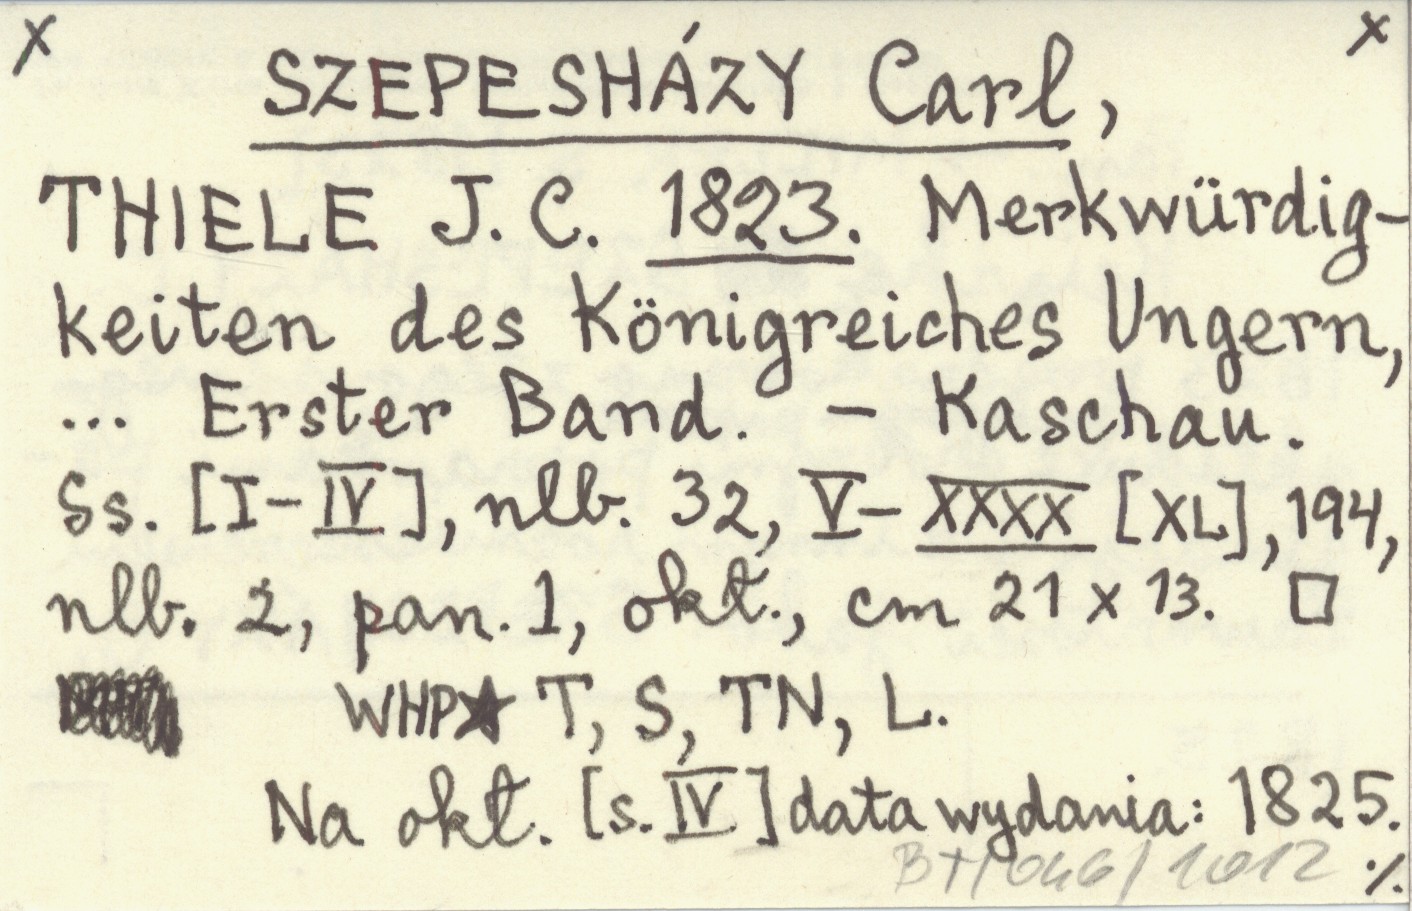 x x
SZEPESHÁZY Carl,
THIELE J. C. 1823. Merkwürdig-
keiten des Königreiches Ungern,
... Erster Band. – Kaschau.
Ss. [I-IV], nlb. 32, V-XXXX [XL], 194,
nlb. 2, pan. 1, okł., cm 21 x 13. □
WHP★ T, S, TN, L.
Na okł. [s. IV] data wydania: 1825.
·/.